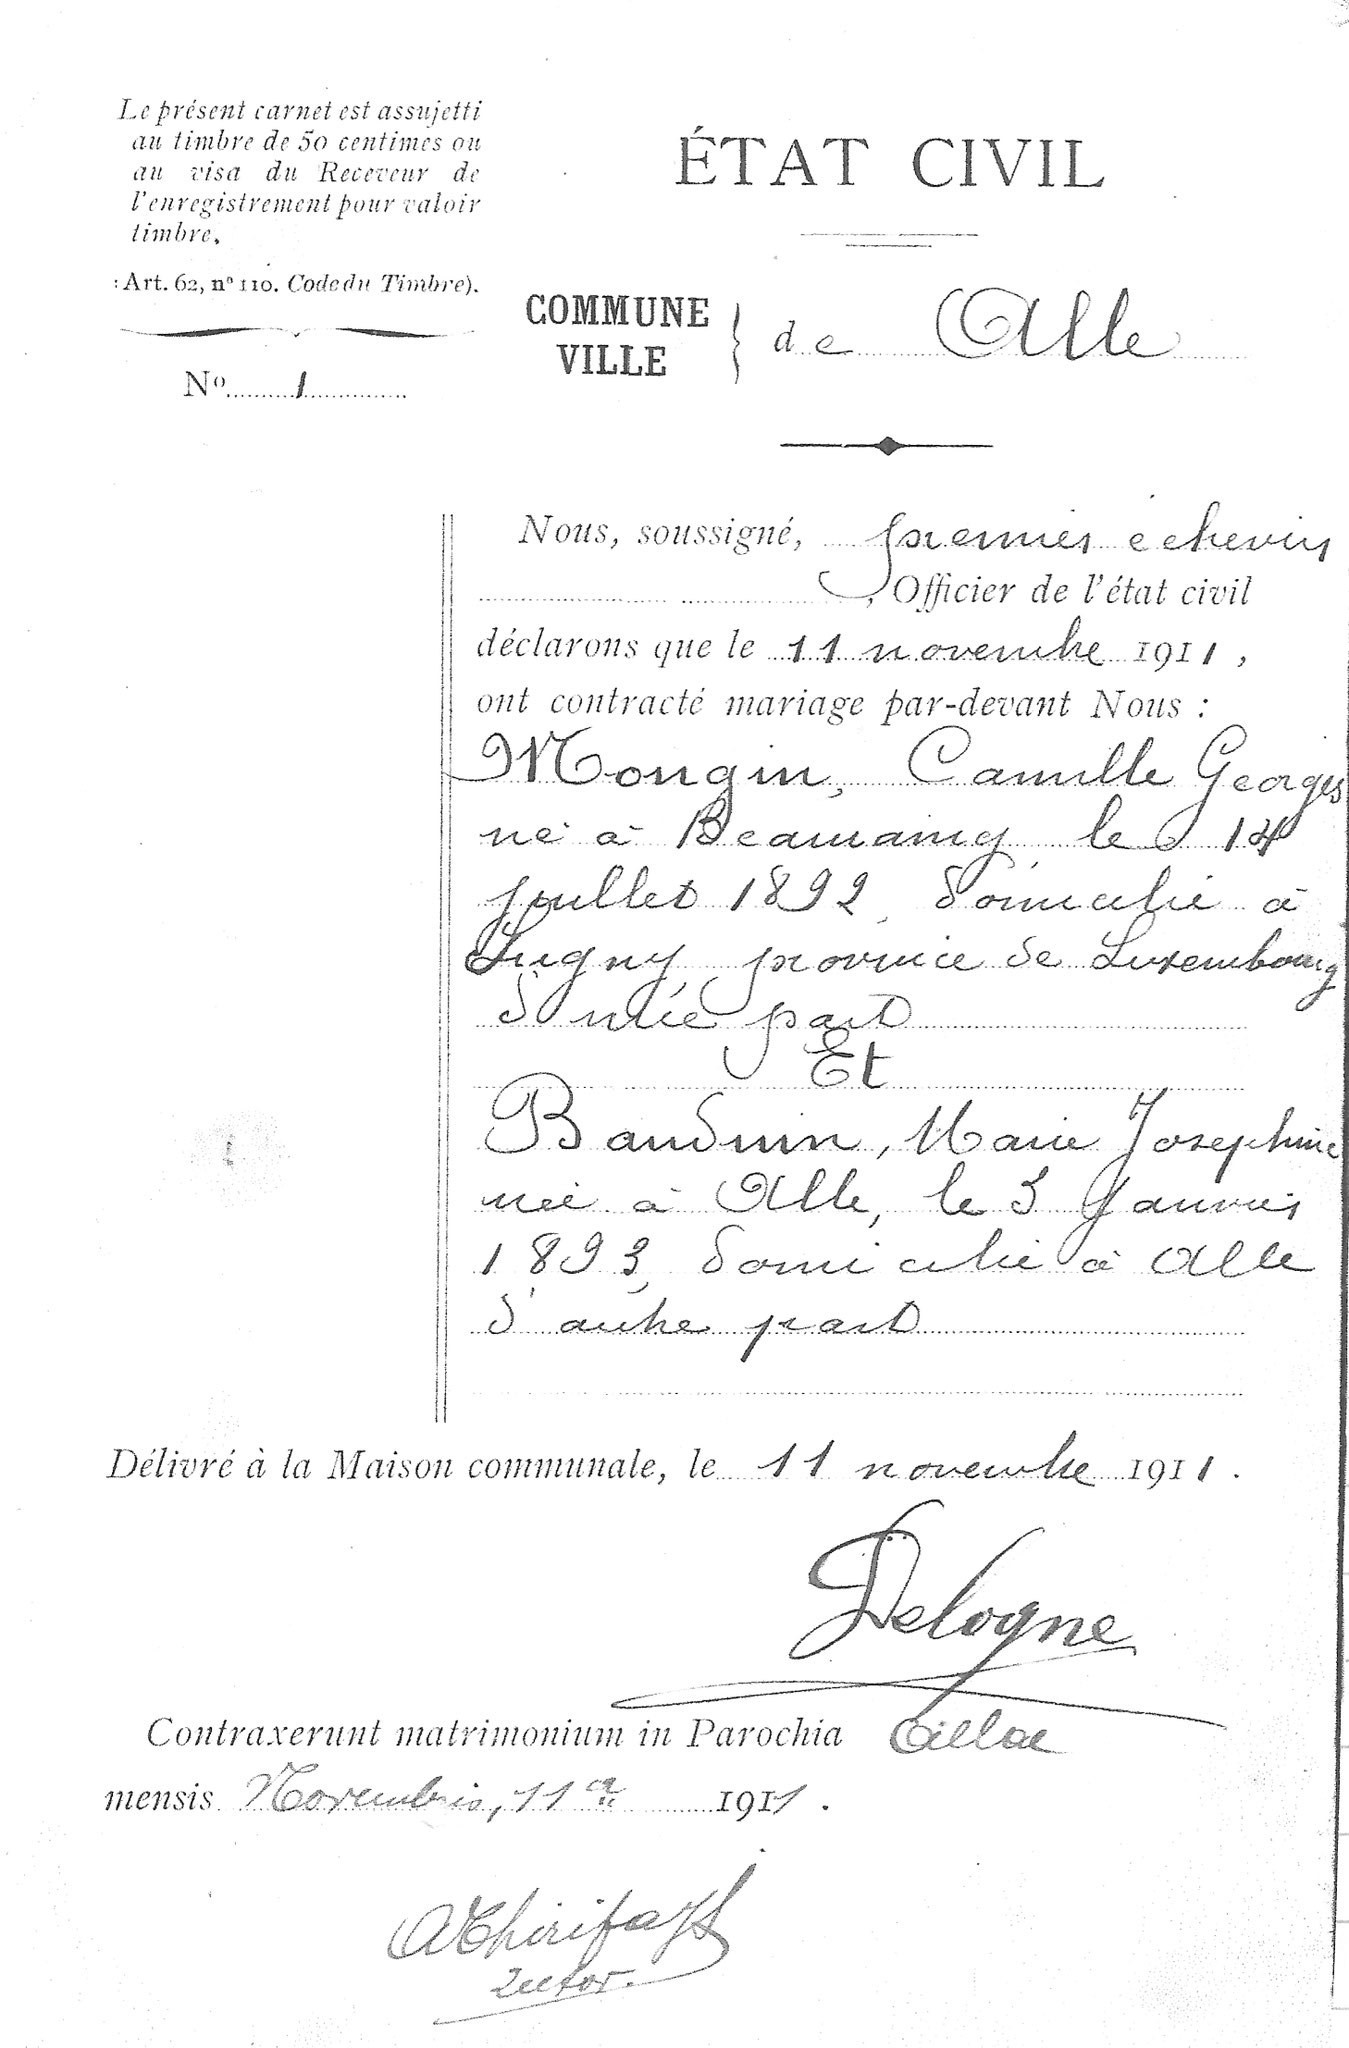 Le présent carnet est assujetti
au timbre de 50 centimes ou
au visa du Receveur de
l'enregistrement pour valoir
timbre.
(Art. 62, nº 110. Code du Timbre).
Nº 1
ÉTAT CIVIL
COMMUNE
VILLE
de Alle
Nous, soussigné, premier échevin
, Officier de l'état civil
déclarons que le 11 novembre 1911,
ont contracté mariage par-devant Nous :
Mongin, Camille Georges
né à Beauraing, le 14
juillet 1892, domicilié à
Sugny, province de Luxembourg
d'une part
Et
Bauduin, Marie Josephine
née à Alle, le 3 Janvier
1893, domicilié à Alle
d'autre part
Délivré à la Maison communale, le 11 novembre 1911.
Delogne
Contraxerunt matrimonium in Parochia
mensis Novembris, 11a 1911.